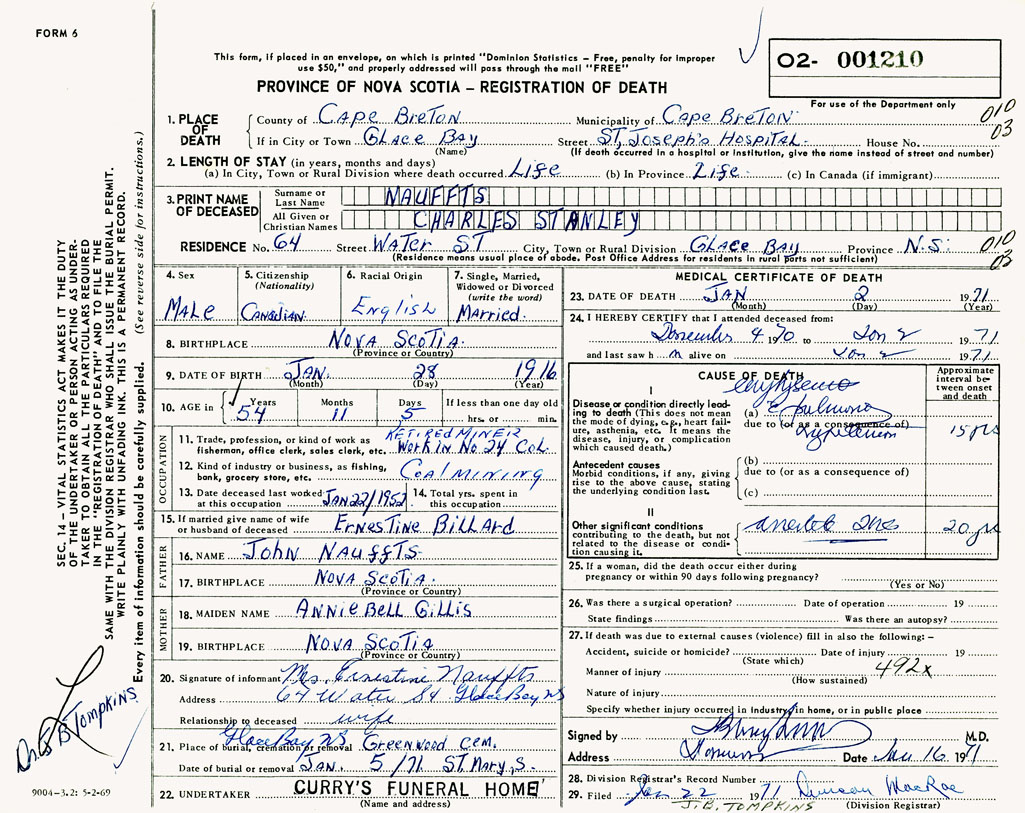 FORM 6
This form, if placed in an envelope, on which is printed "Dominion Statistics – Free, penalty for improper
use $50," and properly addressed will pass through the mail "FREE"
PROVINCE OF NOVA SCOTIA – REGISTRATION OF DEATH
O2- 001210
For use of the Department only
010
03
1. PLACE OF DEATH County of Cape Breton Municipality of Cape Breton
If in City or Town Glace Bay Street St, Joseph's Hospital House No.
(Name) (If death occurred in a hospital or institution, give the name instead of street and number)
2. LENGTH OF STAY (in years, months and days)
(a) In City, Town or Rural Division where death occurred Life (b) In Province Life (c) In Canada (if immigrant)
3. PRINT NAME OF DECEASED Surname or Last Name NAUFFTS
All Given or Christian Names CHARLES STANLEY
RESIDENCE No. 64 Street Water ST City, Town or Rural Division Glace Bay Province N.S.
010
03
(Residence means usual place of abode. Post Office Address for residents in rural parts not sufficient)
4. Sex
Male
5. Citizenship
(Nationality)
Canadian
6. Racial Origin
English
7. Single, Married,
Widowed or Divorced
(write the word)
Married.
8. BIRTHPLACE Nova Scotia.
(Province or Country)
9. DATE OF BIRTH Jan. 28 1916
(Month) (Day) (Year)
10. AGE in Years 54 Months 11 Days 5 If less than one day old
hrs. or min.
OCCUPATION
11. Trade, profession, or kind of work as Retired Miner
fisherman, office clerk, sales clerk, etc. Work in No 24 Col.
12. Kind of industry or business, as fishing,
bank, grocery store, etc. Coal Mining
13. Date deceased last worked
at this occupation Jan 22/1952
14. Total yrs. spent in
this occupation
15. If married give name of wife
or husband of deceased Ernestine Billard
FATHER
16. NAME John Nauffts
17. BIRTHPLACE Nova Scotia.
(Province or Country)
MOTHER
18. MAIDEN NAME Annie Bell Gillis
19. BIRTHPLACE Nova Scotia
(Province or Country)
20. Signature of informant Mrs. Ernestine Nauffts
Address 64 Water St Glace Bay NS
Relationship to deceased wife
Glace Bay NS
21. Place of burial, cremation or removal Greenwood Cem.
Date of burial or removal Jan. 5/71 St. Mary, S.
22. UNDERTAKER CURRY'S FUNERAL HOME
(Name and address)
MEDICAL CERTIFICATE OF DEATH
23. DATE OF DEATH Jan 2 1971
(Month) (Day)
24. I HEREBY CERTIFY that I attended deceased from:
4 1970 to Jan 2 1971
and last saw h m alive on Jan 2 1971
CAUSE OF DEATH
Approximate
interval be-
tween onset
and death
I
Disease or condition directly lead-
ing to death (This does not mean
the mode of dying, e.g., heart fail-
ure, asthenia, etc. It means the
disease, injury, or complication
which caused death.)
(a)
due to (or as a consequence of)
15 yrs
Antecedent causes
Morbid conditions, if any, giving
rise to the above cause, stating
the underlying condition last.
(b)
due to (or as a consequence of)
(c)
II
Other significant conditions
contributing to the death, but not
related to the disease or condi-
tion causing it.
20 yrs
25. If a woman, did the death occur either during
pregnancy or within 90 days following pregnancy?
(Yes or No)
26. Was there a surgical operation? Date of operation 19
State findings Was there an autopsy?
27. If death was due to external causes (violence) fill in also the following: –
Accident, suicide or homicide? Date of injury 19
(State which)
Manner of injury 492x
(How sustained)
Nature of injury
Specify whether injury occurred in industry, in home, or in public place
Signed by M.D.
Address Date 16 1971
28. Division Registrar's Record Number
29. Filed Jan 22 1971 Duncan MacRae
J.B. TOMPKINS (Division Registrar)
SEC. 14 – VITAL STATISTICS ACT MAKES IT THE DUTY
OF THE UNDERTAKER OR PERSON ACTING AS UNDER-
TAKER TO OBTAIN ALL THE PARTICULARS REQUIRED
IN THE "REGISTRATION OF DEATH" AND TO FILE THE
SAME WITH THE DIVISION REGISTRAR WHO SHALL ISSUE THE BURIAL PERMIT.
WRITE PLAINLY WITH UNFADING INK. THIS IS A PERMANENT RECORD.
Every item of information should be carefully supplied. (See reverse side for instructions.)
B Tompkins
9004-3.2: 5-2-69